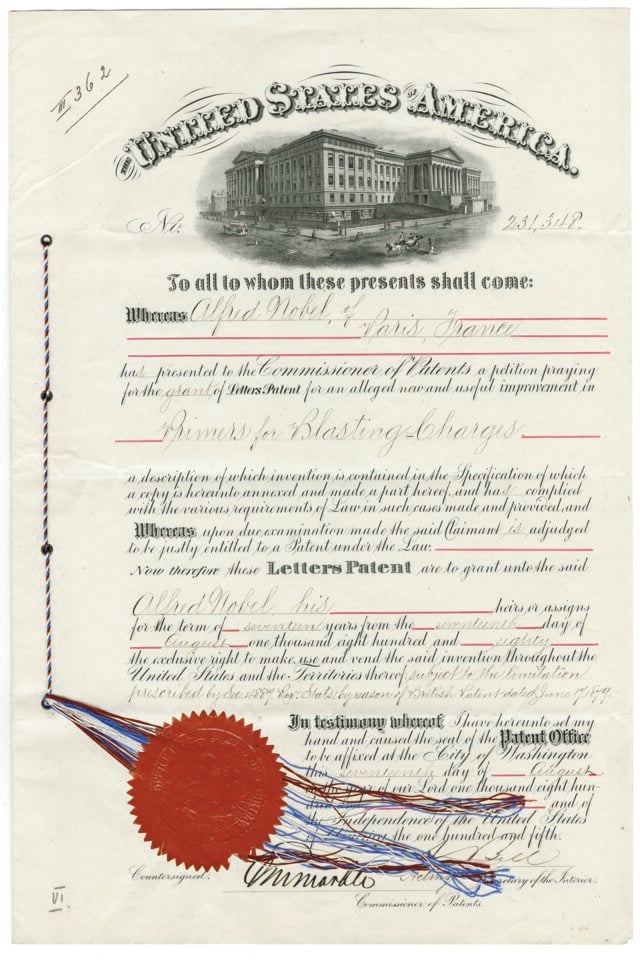 III 362
THE UNITED STATES OF AMERICA.
No. 231,348.
To all to whom these presents shall come:
Whereas Alfred Nobel, of
Paris, France
has presented to the Commissioner of Patents a petition praying
for the grant of Letters Patent for an alleged new and useful improvement in
Primers for Blasting-Charges
a description of which invention is contained in the Specification of which
a copy is hereunto annexed and made a part hereof, and has complied
with the various requirements of Law in such cases made and provided, and
Whereas upon due examination made the said Claimant is adjudged
to be justly entitled to a Patent under the Law.
Now therefore these Letters Patent are to grant unto the said
Alfred Nobel his heirs or assigns
for the term of seventeen years from the seventeenth day of
August one thousand eight hundred and eighty
the exclusive right to make, use and vend the said invention throughout the
United States and the Territories thereof, subject to the limitation
prescribed by Sec. 4887 Rev. Stats. by reason of British Patent dated June 17, 1879.
In testimony whereof I have hereunto set my
hand and caused the seal of the Patent Office
to be affixed at the City of Washington
this seventeenth day of August
year of our Lord one thousand eight hun-
and of
the Independence of the United States
the one hundred and fifth.
Bell
Countersigned. Secretary of the Interior.
Commissioner of Patents.
VI